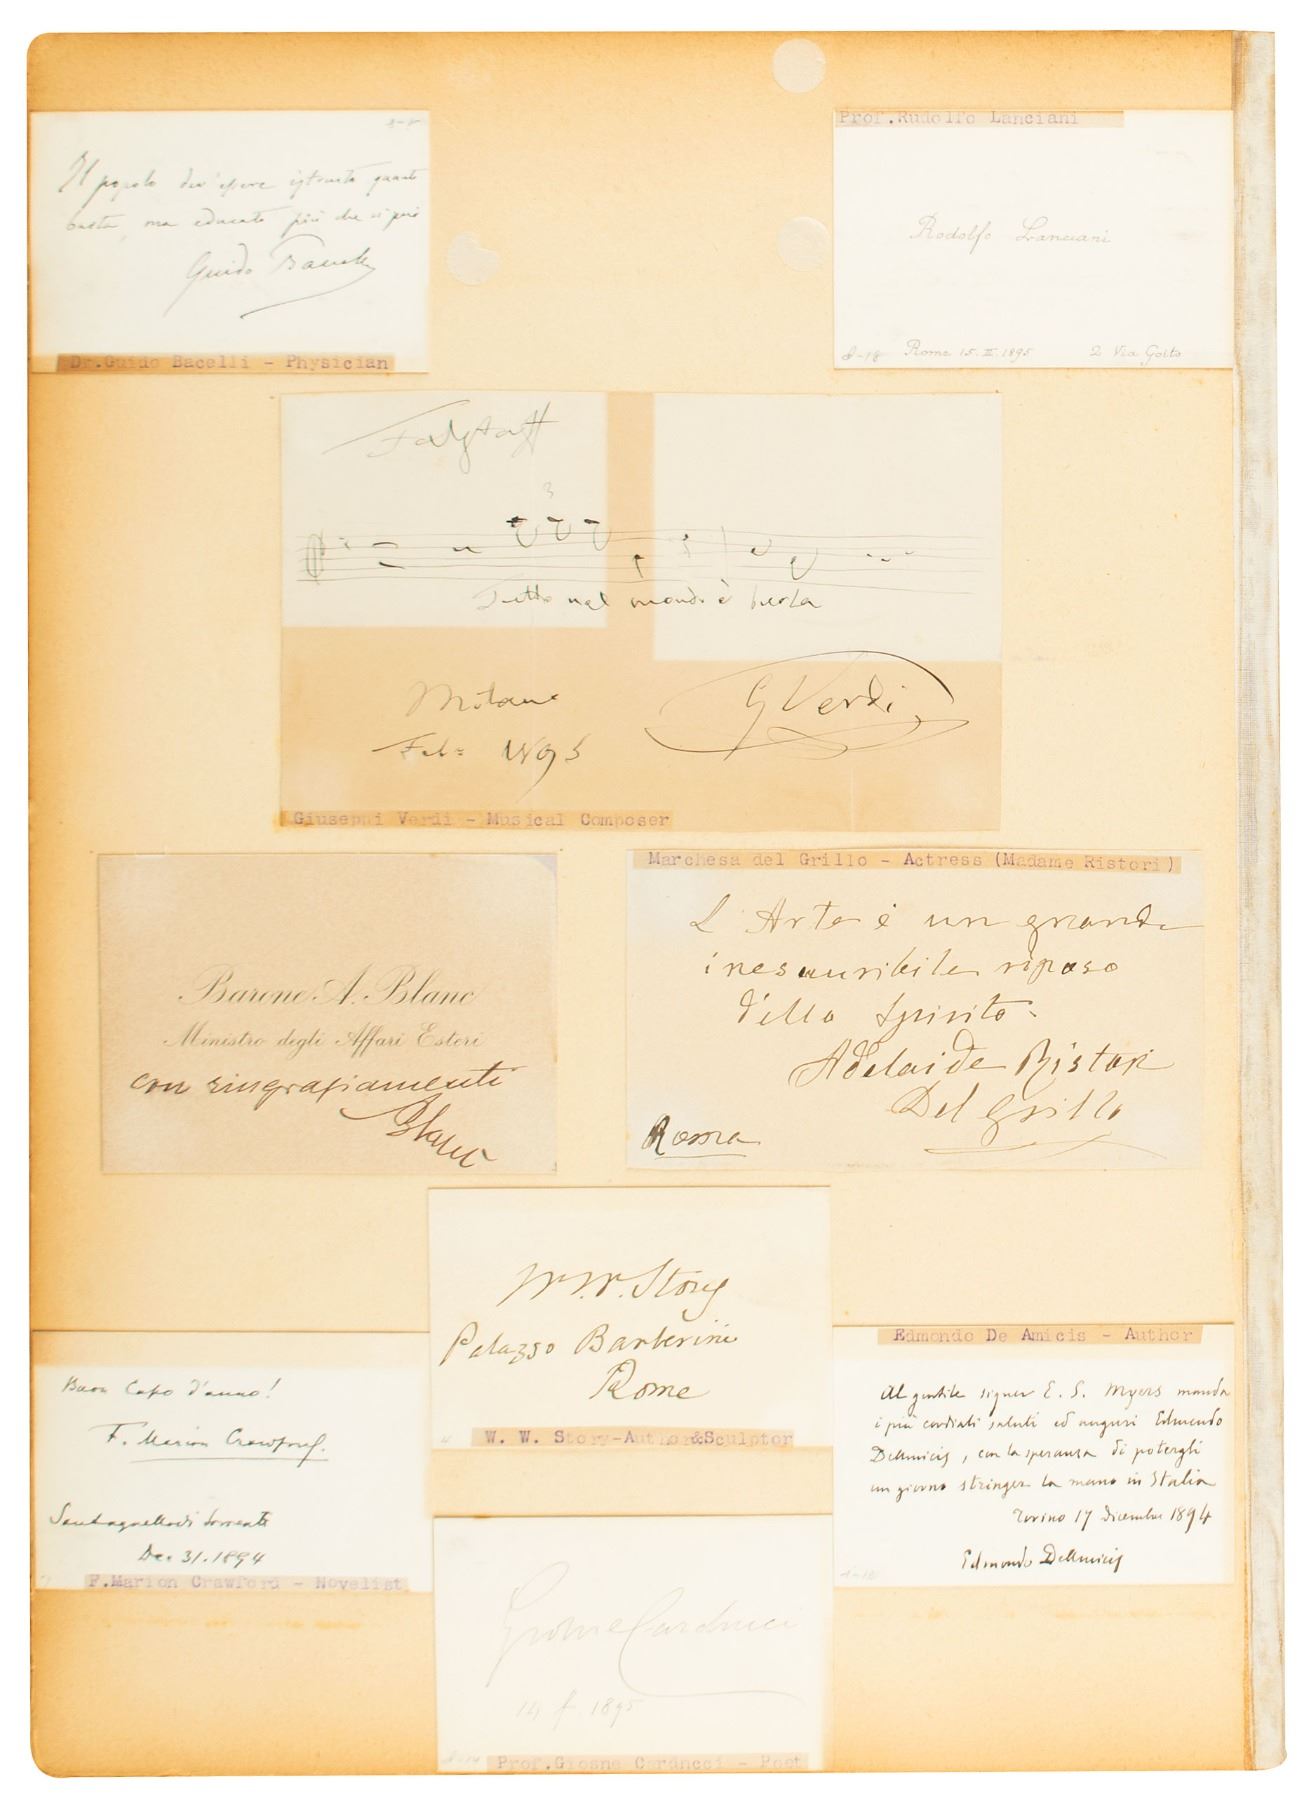 8-8
Il popolo dev'essere istruito quanto
basta, ma educato più che si può
Guido Baccelli
Dr.Guido Bacelli - Physician
Prof.Rudolfo Lanciani
Rodolfo Lanciani
8-18 Rome 15.II.1895 2 Via Goito
Falstaff
3
Tutto nel mondo è burla
Milano
Feb: 1895
G Verdi
Giuseppi Verdi - Musical Composer
Barone A. Blanc
Ministro degli Affari Esteri
con ringraziamenti
Blanc
Marchesa del Grillo - Actress (Madame Ristori)
L'Arte è un grande
inesauribile riposo
dello Spirito-
Adelaide Ristori
Del Grillo
Roma
W. W. Story
Palazzo Barberini
Rome
W. W. Story-Author&Sculptor
Buon Capo d'anno!
F. Marion Crawford.
Sant'agnello di Sorrento
Dec. 31. 1894
F.Marion Crawford - Novelist
Edmondo De Amicis - Author
Al gentile signor E. S. Myers manda
i più cordiali saluti ed auguri Edmondo
DeAmicis, con la speranza di potergli
un giorno stringer la mano in Italia
Torino 17 dicembre 1894
Edmondo DeAmicis
Giosue Carducci
14 f. 1895
Prof.Giosne Carducci - Poet